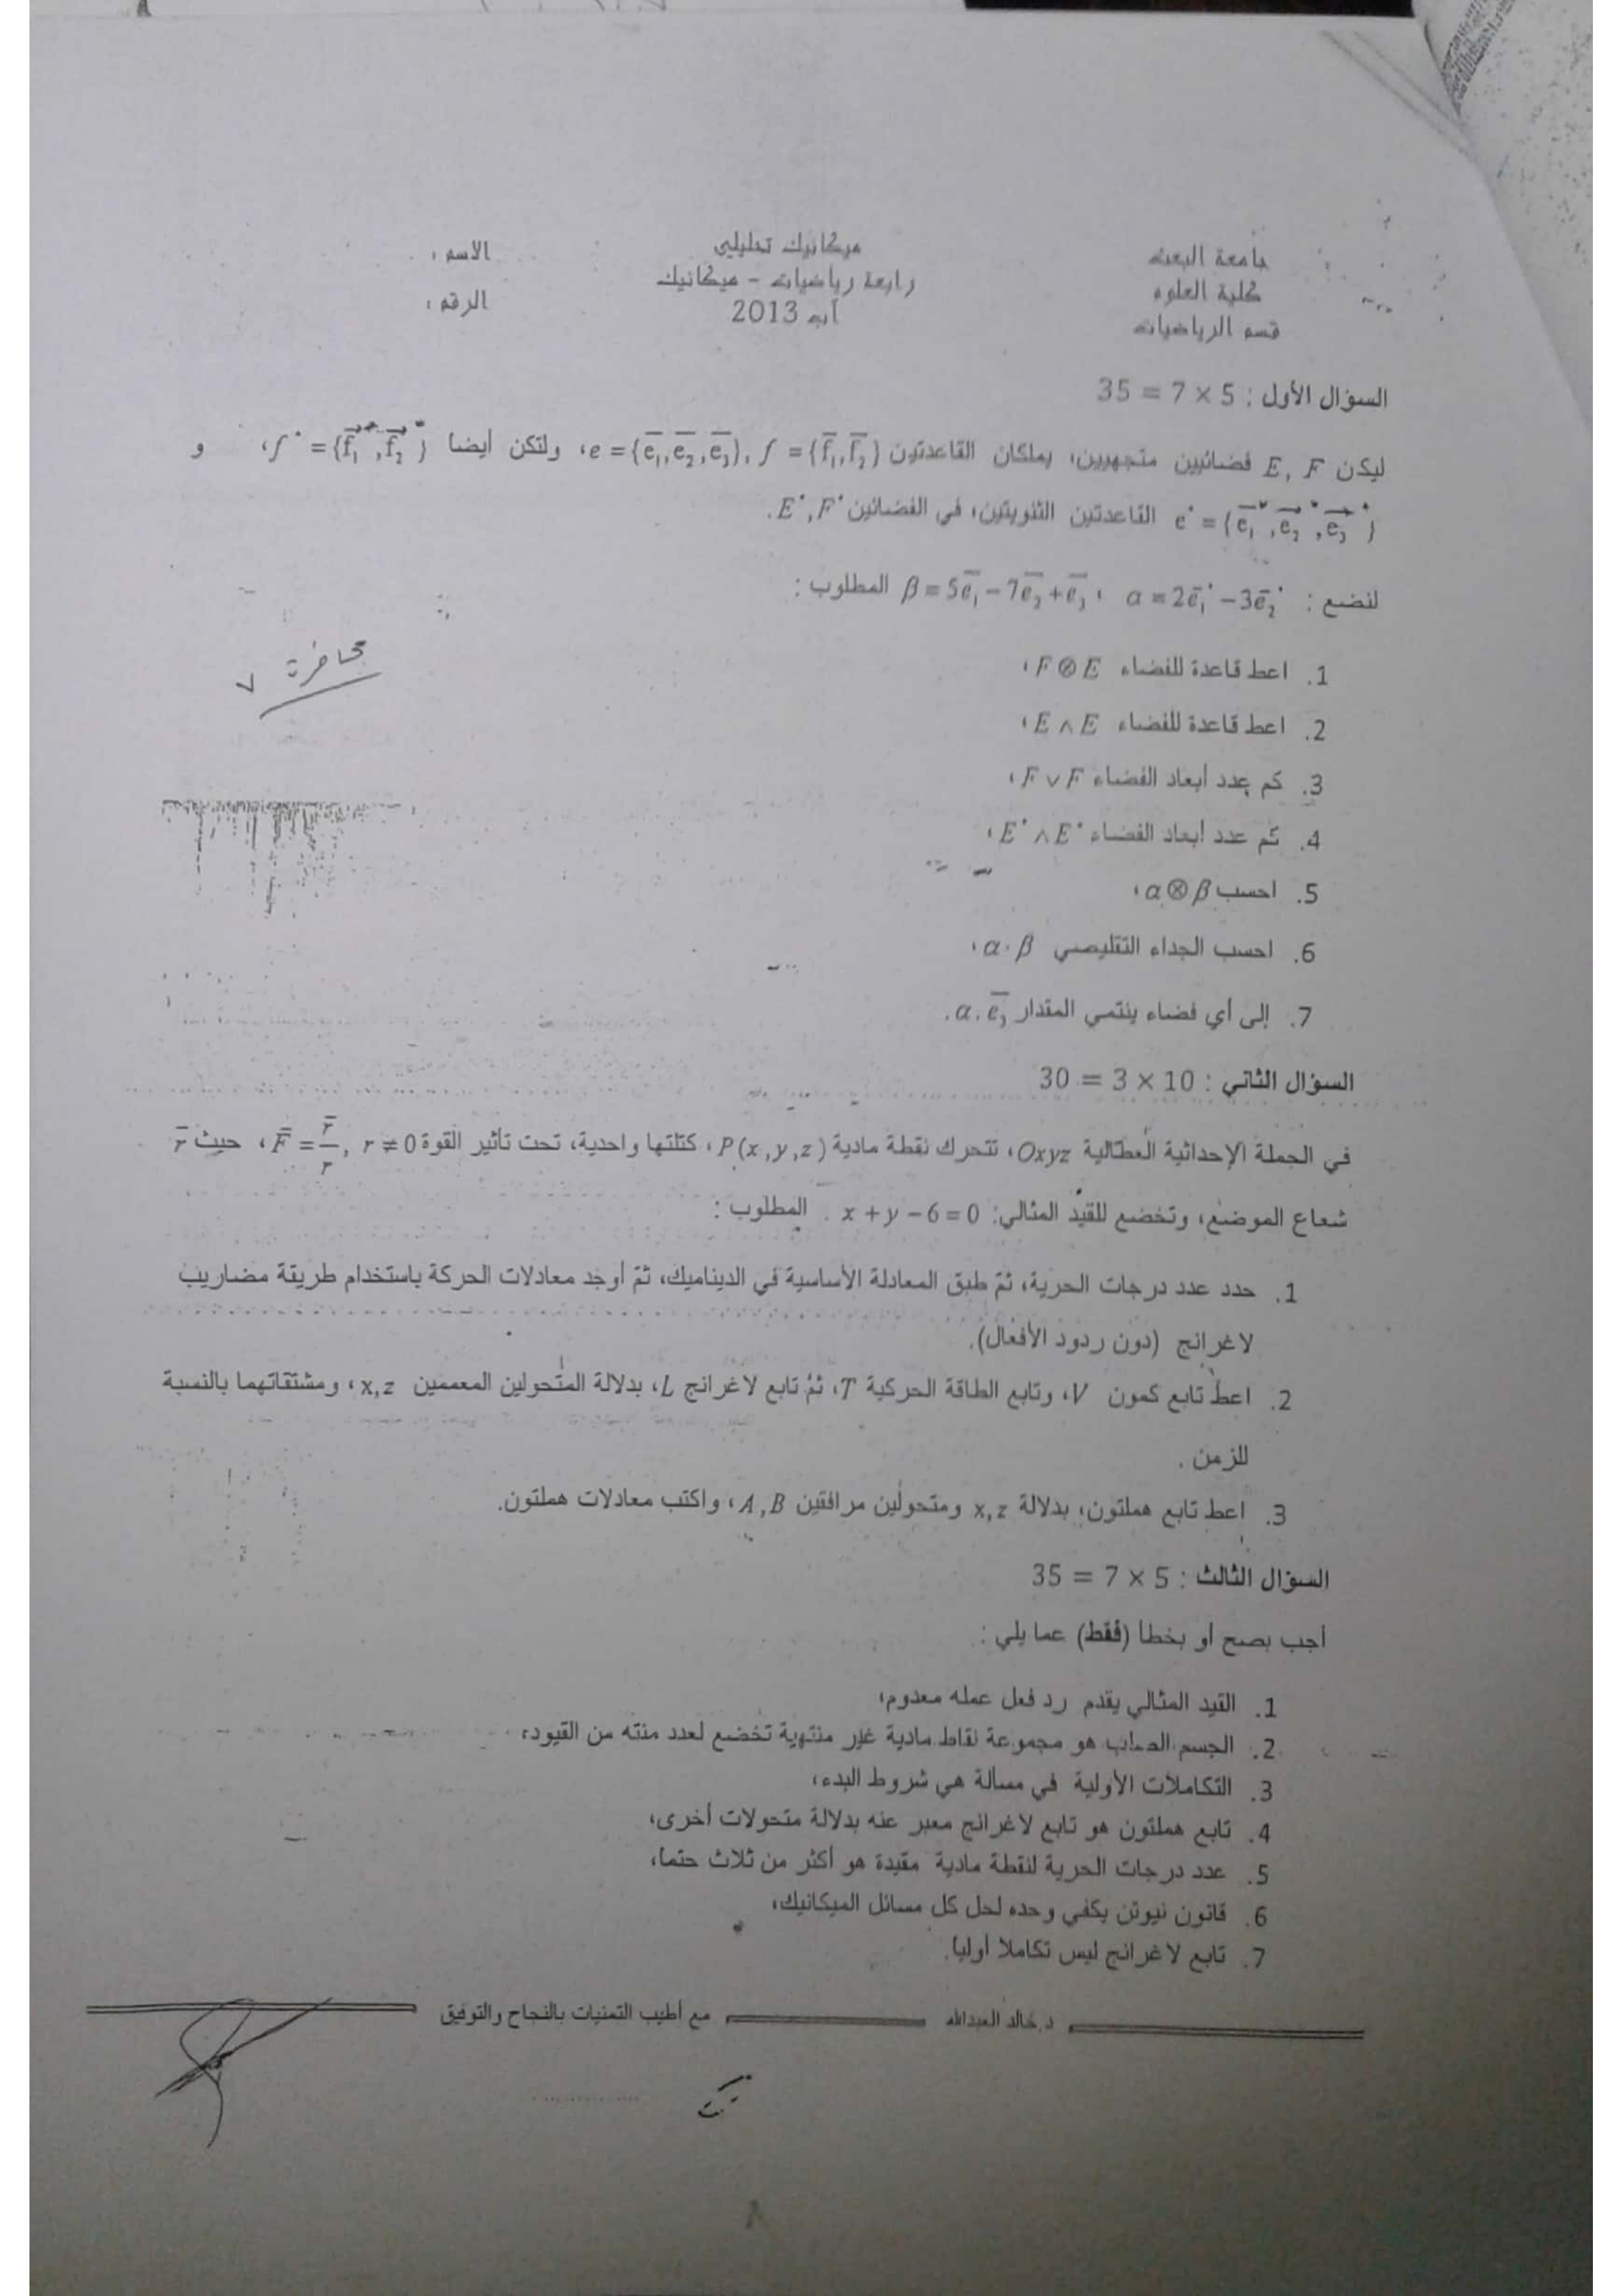 جامعة البعث
كلية العلوم
قسم الرياضيات
ميكانيك تحليلي
رابعة رياضيات - ميكانيك
آب 2013
الاسم :
الرقم :
السؤال الأول : 5 × 7 = 35
ليكن E, F فضائيين متجهيين، يملكان القاعدتين e = {e₁, e₂, e₃}, f = {f₁, f₂}، ولتكن أيضا f* = {f₁*, f₂*}، و
e* = {e₁*, e₂*, e₃*} القاعدتين الثنويتين، في الفضائين E*, F*.
لنضع : α = 2e₁* − 3e₂* ، β = 5e₁ − 7e₂ + e₃ المطلوب :
محاضرة ٧
1. اعط قاعدة للفضاء F ⊗ E ،
2. اعط قاعدة للفضاء E ∧ E ،
3. كم عدد أبعاد الفضاء F ∨ F ،
4. كم عدد أبعاد الفضاء E* ∧ E* ،
5. احسب α ⊗ β ،
6. احسب الجداء التقليصي α · β ،
7. إلى أي فضاء ينتمي المقدار α . e₃ .
السؤال الثاني : 10 × 3 = 30
في الجملة الإحداثية العطالية Oxyz، تتحرك نقطة مادية P(x, y, z)، كتلتها واحدية، تحت تأثير القوة F = r/r , r ≠ 0 ، حيث r
شعاع الموضع، وتخضع للقيد المثالي: x + y − 6 = 0 . المطلوب :
1. حدد عدد درجات الحرية، ثمّ طبق المعادلة الأساسية في الديناميك، ثمّ أوجد معادلات الحركة باستخدام طريقة مضاريب
لاغرانج (دون ردود الأفعال).
2. اعط تابع كمون V، وتابع الطاقة الحركية T، ثمّ تابع لاغرانج L، بدلالة المتحولين المعممين x, z ، ومشتقاتهما بالنسبة
للزمن .
3. اعط تابع هملتون، بدلالة x, z ومتحولين مرافقين A, B، واكتب معادلات هملتون.
السؤال الثالث : 5 × 7 = 35
أجب بصح أو بخطأ (فقط) عما يلي :
1. القيد المثالي يقدم رد فعل عمله معدوم،
2. الجسم الصلب هو مجموعة نقاط مادية غير منتهية تخضع لعدد منته من القيود،
3. التكاملات الأولية في مسألة هي شروط البدء،
4. تابع هملتون هو تابع لاغرانج معبر عنه بدلالة متحولات أخرى،
5. عدد درجات الحرية لنقطة مادية مقيدة هو أكثر من ثلاث حتما،
6. قانون نيوتن يكفي وحده لحل كل مسائل الميكانيك،
7. تابع لاغرانج ليس تكاملا أوليا.
د.خالد العبدالله
مع أطيب التمنيات بالنجاح والتوفيق
٨